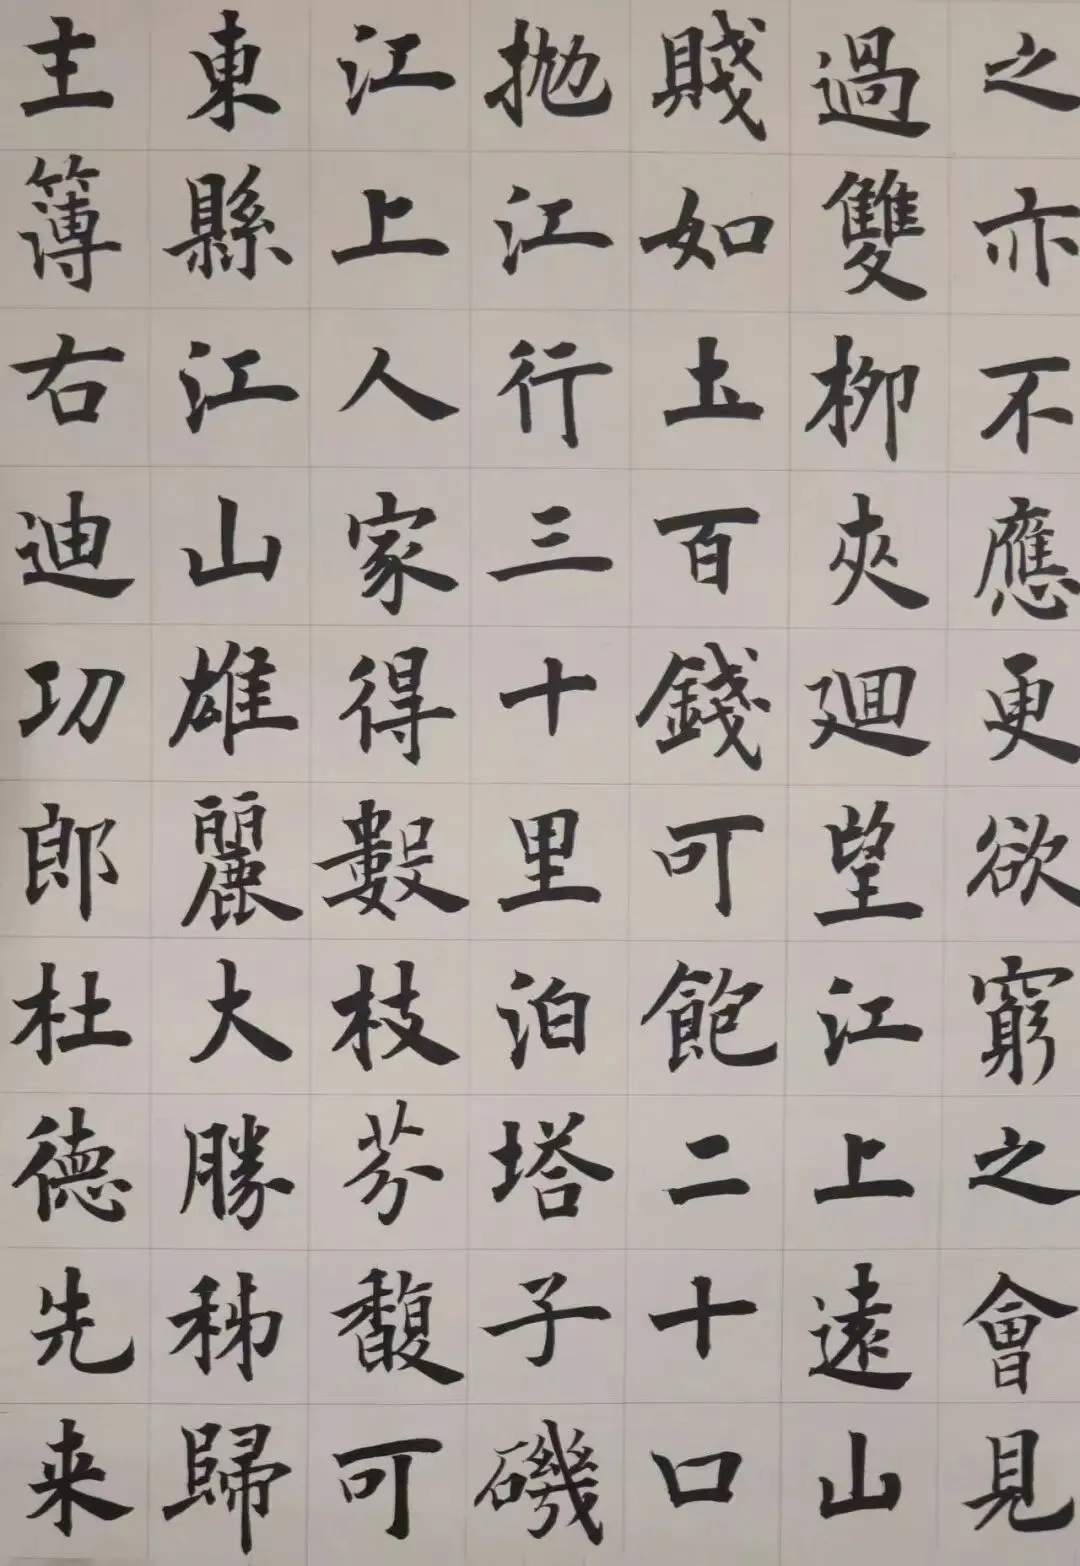 之亦不應更欲窮之會見
過雙柳夾廻望江上遠山
賤如圡百錢可飽二十口
抛江行三十里泊塔子磯
江上人家得數枝芬馥可
東縣江山雄麗大勝秭歸
主簿右迪功郎杜德先来